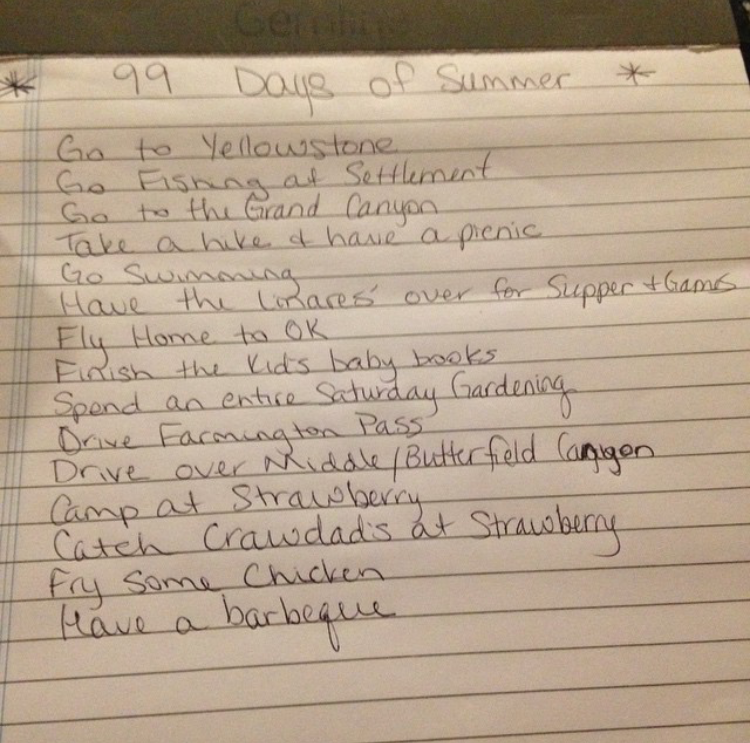 Gemline
* 99 Days of Summer *
Go to Yellowstone
Go Fishing at Settlement
Go to the Grand Canyon
Take a hike & have a picnic
Go Swimming
Have the Linares' over for Supper + Games
Fly Home to OK
Finish the kid's baby books
Spend an entire Saturday Gardening
Drive Farmington Pass
Drive over Middle/Butterfield Canyon
Camp at Strawberry
Catch Crawdad's at Strawberry
Fry Some Chicken
Have a barbeque